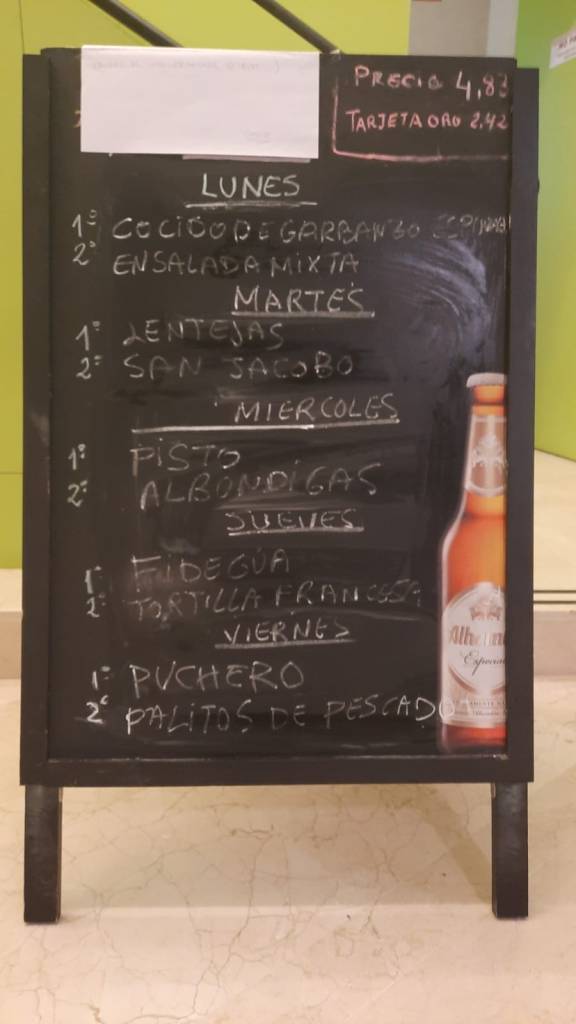 PRECIO 4,83
TARJETA ORO 2,42
LUNES
1º COCIDO DE GARBANZO
2º ENSALADA MIXTA
MARTES
1º LENTEJAS
2º SAN JACOBO
MIERCOLES
1º PISTO
2º ALBONDIGAS
JUEVES
1º FIDEGUA
2º TORTILLA FRANCESA
VIERNES
1º PUCHERO
2º PALITOS DE PESCADO
Alham
Especial